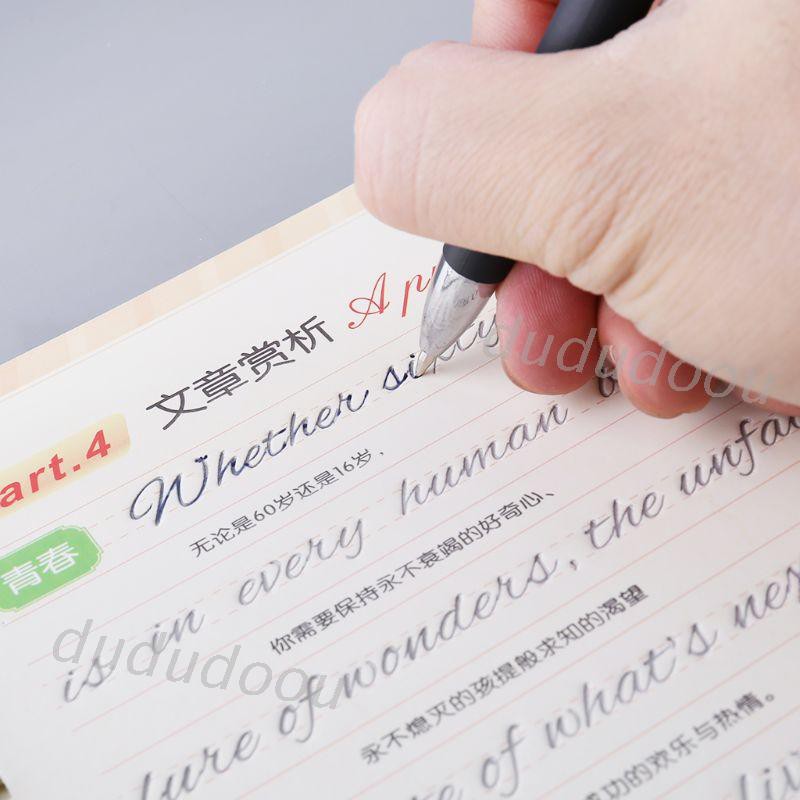 art.4 文章赏析 Ap
Whether sixty
青春
无论是60岁还是16岁，
is in every human
你需要保持永不衰竭的好奇心、
lure of wonders, the unfai
永不熄灭的孩提般求知的渴望
of what's nex
成功的欢乐与热情。
dydudoou
dydudoou